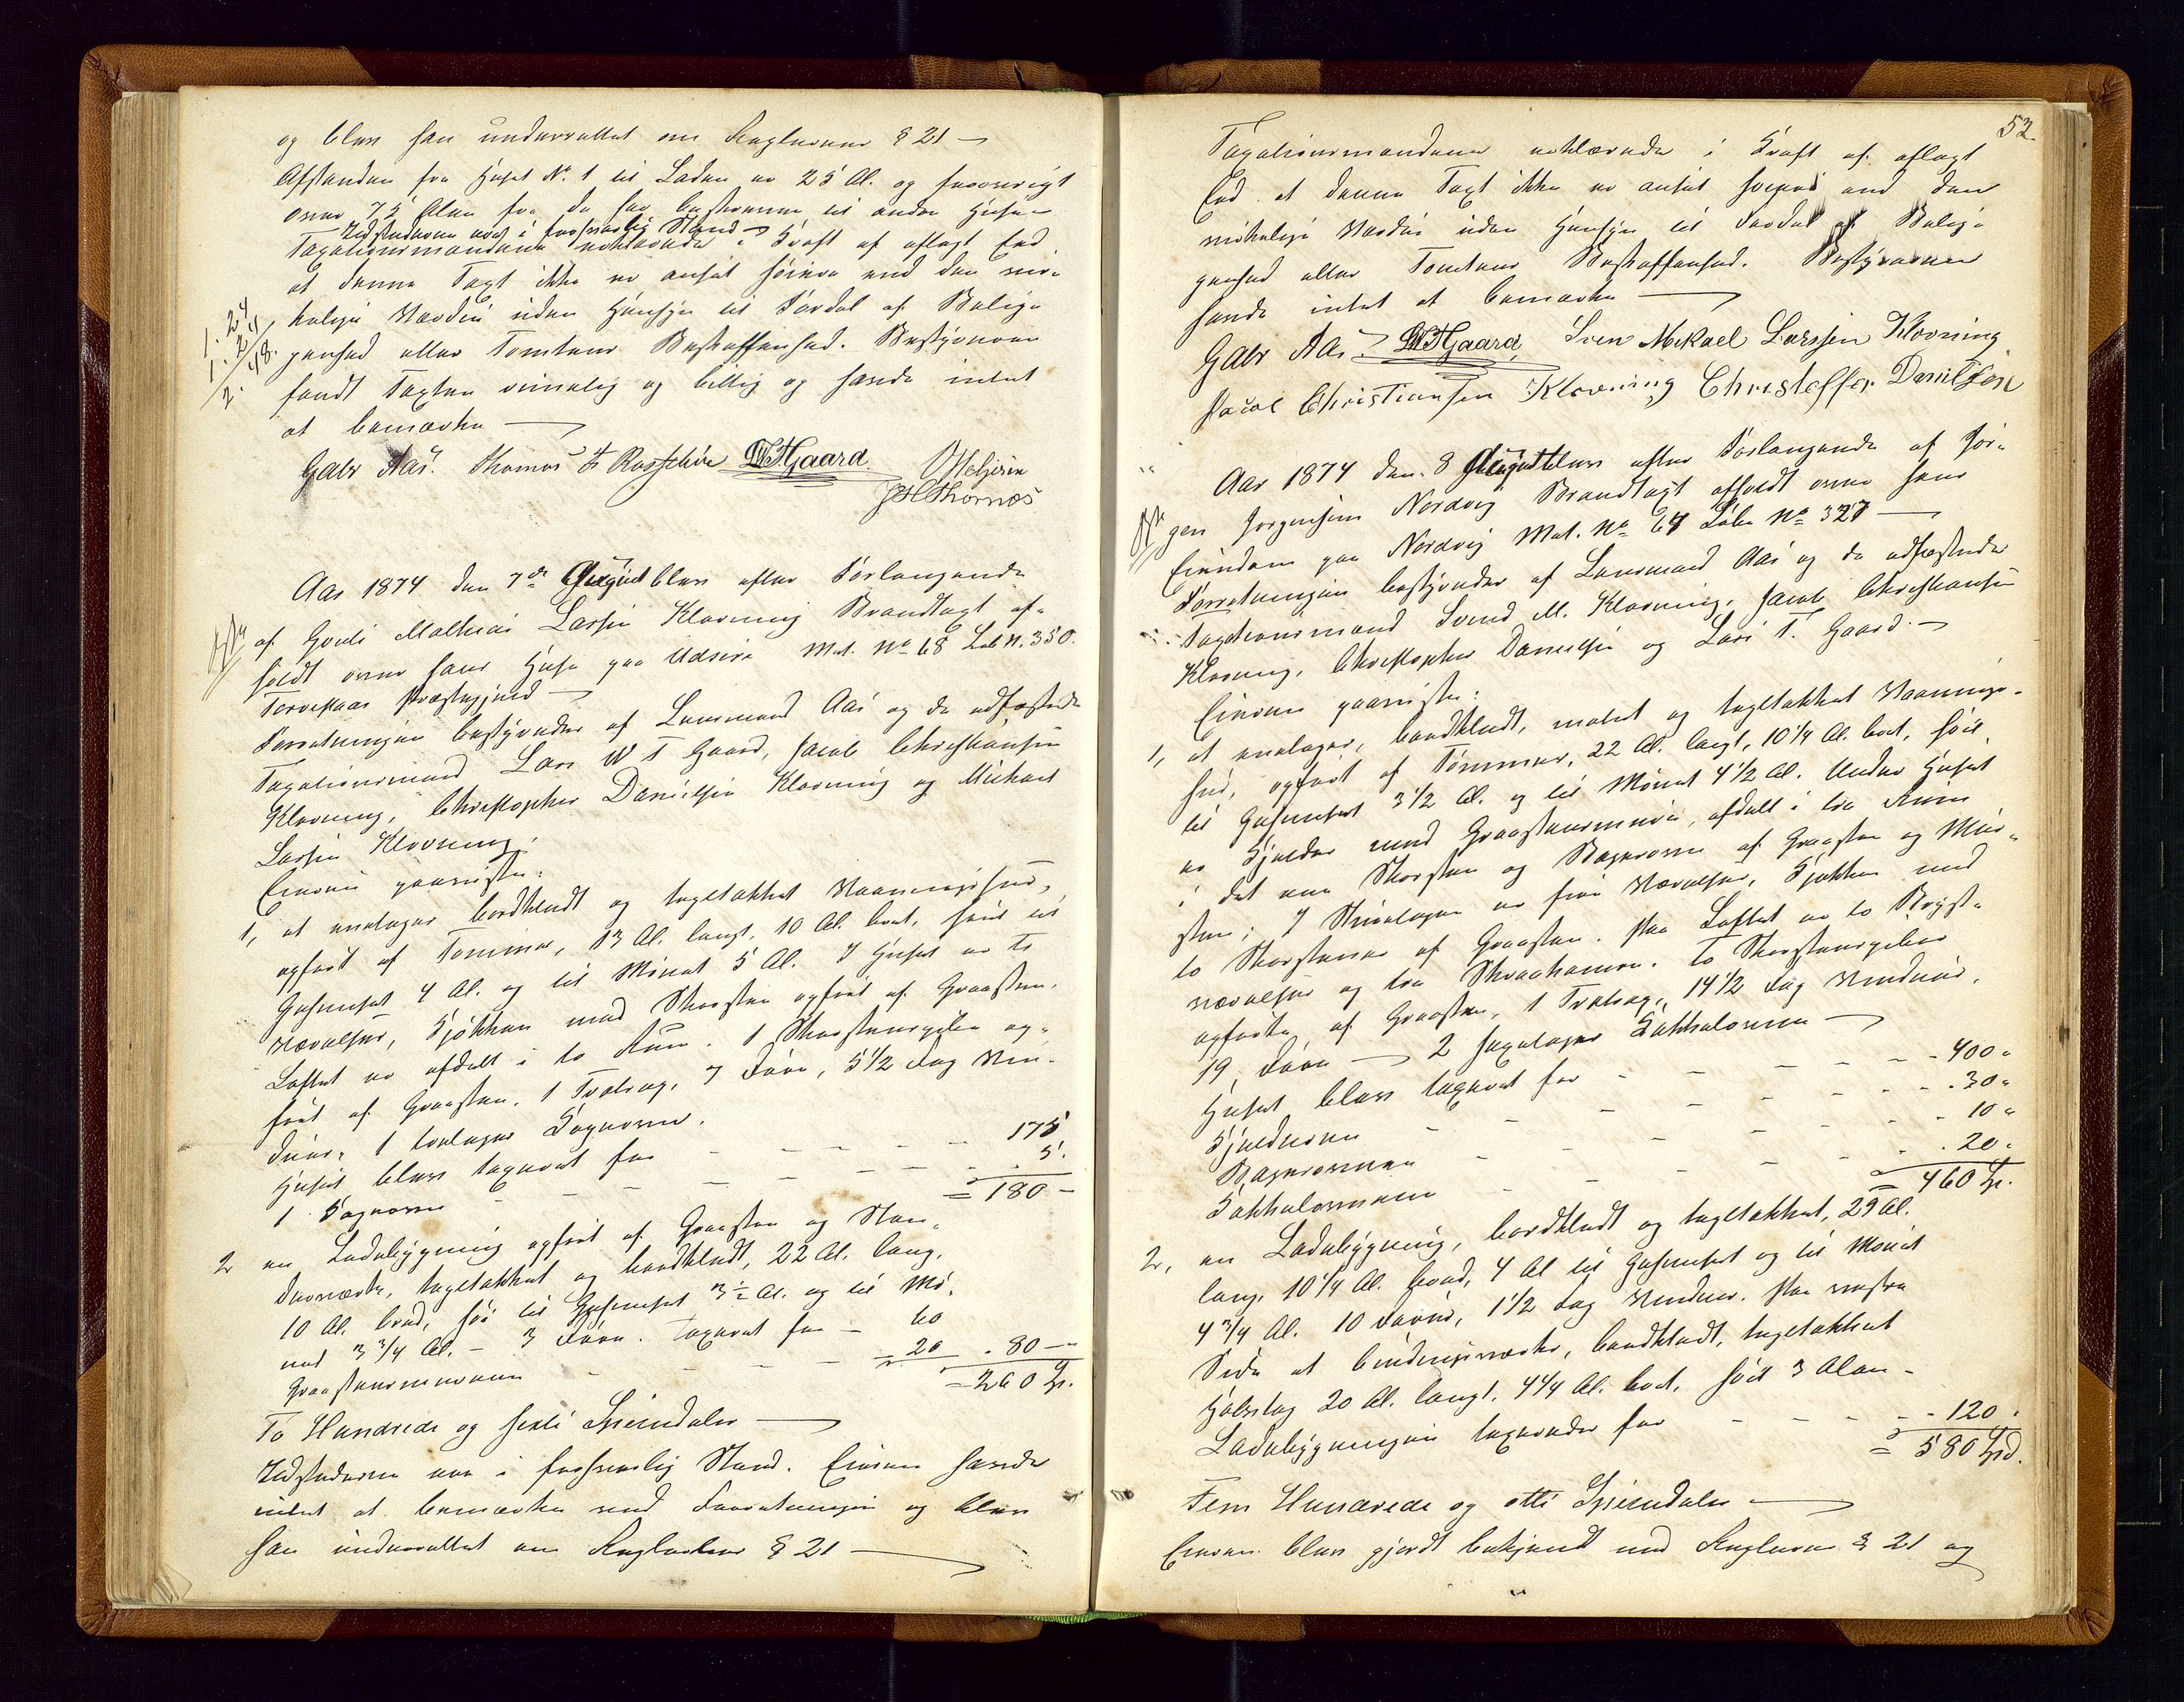 og blev han underrettet om Reglernes § 21 —
Afstanden fra Huset No. 1 til Laden er 25 Al. og forøvrigt
over 75 Alen fra de her beskrevne til andre Huse —
Ildstederne var i forsvarlig Stand —
Taxationsmændene erklærede i Kraft af aflagt Eed
at denne Taxt ikke er ansat høiere end den vir-
kelige Værdie uden Hensyn til Fordel af Belig-
genhed eller Tomtens Beskaffenhed. Bestyreren
fandt Taxten rimelig og billig og havde intet
at bemærke —
Gabr Aas. Thomas T. LWTGaard.
JHThornæs
Aar 1874 den 7de August blev efter Forlangende
af Mathias Larsen Klovning Brandtaxt af-
holdt over hans Huse paa Udsire Mat. No 68 Løb N. 350.
Torvestad Præstegjeld —
Forretningen bestyredes af Lensmand Aas og de udfæstede
Taxationsmænd Lars W T Gaard, Jacob Christiansen
Klovning, Christopher Danielsen Klovning og Michael
Larsen Klovning.
Eieren paaviste:
1, et enetages bordklædt og tegltækket Vaaningshus,
opført af Tømmer, 13 Al. langt, 10 Al. bredt, høit til
Gesimset 4 Al. og til Mønet 5 Al. I Huset er to
Værelser, Kjøkken med Skorsten opført af Graasten.
Loftet er afdelt i to Rum. 1 Skorstenspibe op-
ført af Graasten. 1 Trætrap, 7 Døre, 5 1/2 Fag Vin-
duer. 1 toetages Kogeovn.
Huset blev taxeret for - - - - 175
1 Kogeovn - - - - - - 5.
= 180 -
2 en Ladebygning opført af Graasten og Sten-
derværk, tegltækket og bordklædt, 22 Al. lang,
10 Al. bred, høi til Gesimset 3 1/2 Al. og til Mø-
net 3 3/4 Al. - 3 Døre. Taxeret for - 60
Graastensmurene - - - - 20 . 80 —
= 260 Sp.
To Hundrede og sexti Speciedaler —
Ildstederne var i forsvarlig Stand. Eieren havde
intet at bemærke ved Forretningen og blev
han underrettet om Reglernes § 21 —
52
Taxationsmændene erklærede i Kraft af aflagt
Eed at denne Taxt ikke er ansat høiere end den
virkelige Værdie uden Hensyn til Fordel af Belig-
genhed eller Tomtens Beskaffenhed. Bestyreren
havde intet at bemærke —
Gabr Aas. LWTGaard, Sven Mikael Larssen Klovning
Jacob Christiansen Klovning Christoffer Danilsen
Aar 1874 den 8 August blev efter Forlangende af Jør-
gen Jørgensen Nordvig Brandtaxt afholdt over hans
Eiendom paa Nordvig Mat. No 67 Løbe No 327 —
Forretningen bestyredes af Lensmand Aas og de udfæstede
Taxationsmænd Svend M. Klovning, Jacob Christiansen
Klovning, Christopher Danielsen og Lars T. Gaard. —
Eieren paaviste:
1, et enetages, bordklædt, malet og tegltækket Vaanings-
hus, opført af Tømmer, 22 Al. langt, 10 1/4 Al. bredt, høit
til Gesimset 3 1/2 Al. og til Mønet 4 1/2 Al. Under Huset
er Kjelder med Graastensmure, afdelt i tre Rum
i det ene Skorsten og Bagerovn af Graasten og Mur-
sten; I Stueetagen er fire Værelser, Kjøkken med
to Skorstene af Graasten. Paa Loftet er to Kvist-
værelser og tre Skraakamre. to Skorstenspiber
opførte af Graasten, 1 Trætrap, 14 1/2 Fag Vinduer,
19 Døre — 2 Kakkelovne —
Huset blev taxeret for - - - - - 400 "
Kjelderen - - - - - - 30 "
Bagerovnen - - - - - 10 "
Kakkelovnene - - - - - 20 "
= 460 Sp.
2, en Ladebygning, bordklædt og tegltækket, 29 Al.
lang, 10 1/4 Al. bred, 4 Al til Gesimset og til Mønet
4 3/4 Al. 10 Døre, 1 1/2 Fag Vinduer. Paa vestre
Side et bindingsværks, bordklædt, tegltækket
Halvtag 20 Al. langt, 4 1/4 Al. bredt, høit 3 Alen -
Ladebygningen taxeredes for - - - - 120 "
= 580 Spd.
Fem Hundrede og otti Speciedaler —
Eieren blev gjort bekjendt med Reglernes § 21 og